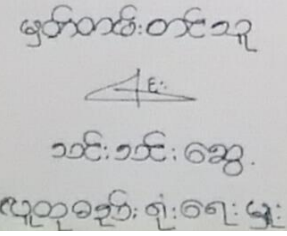 မှတ်တမ်းတင်သူ
သင်းသင်းဆွေ.
လူထုစည်းရုံးရေးမှူး